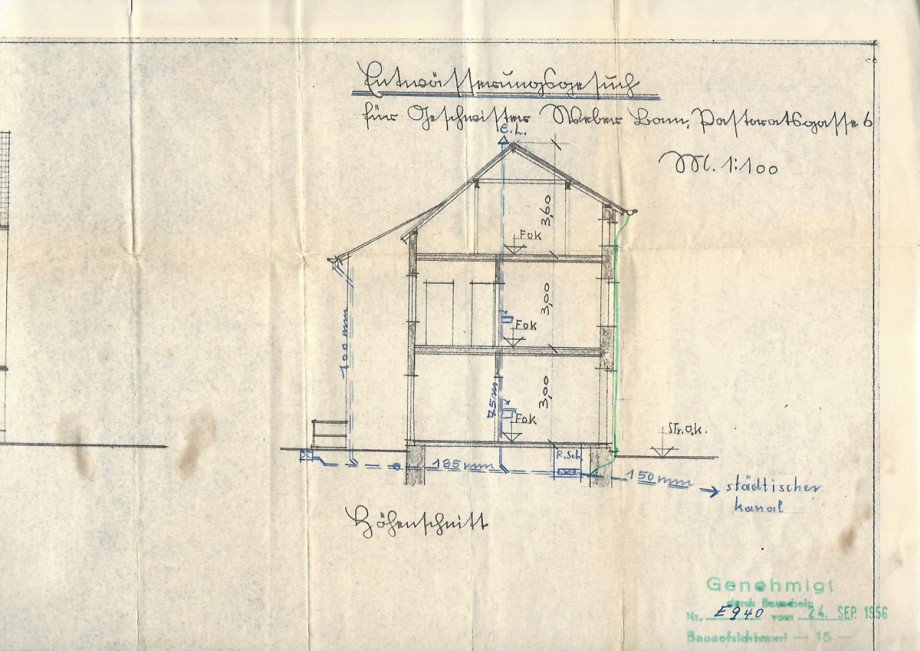 Entwässerungsgesuch
für Geschwister Weber Bam, Pastoratsgasse 6
M. 1:100
E.L.
3,60
Fok
3,00
Fok
100 mm
3,00
75 mm
Fok
Str.o.k.
R.Sch
185 mm
150 mm
städtischer
kanal
Höhenschnitt
Genehmigt
durch Bauschein
Nr. E 940 vom 24. SEP. 1956
Bauaufsichtsamt — 15 —